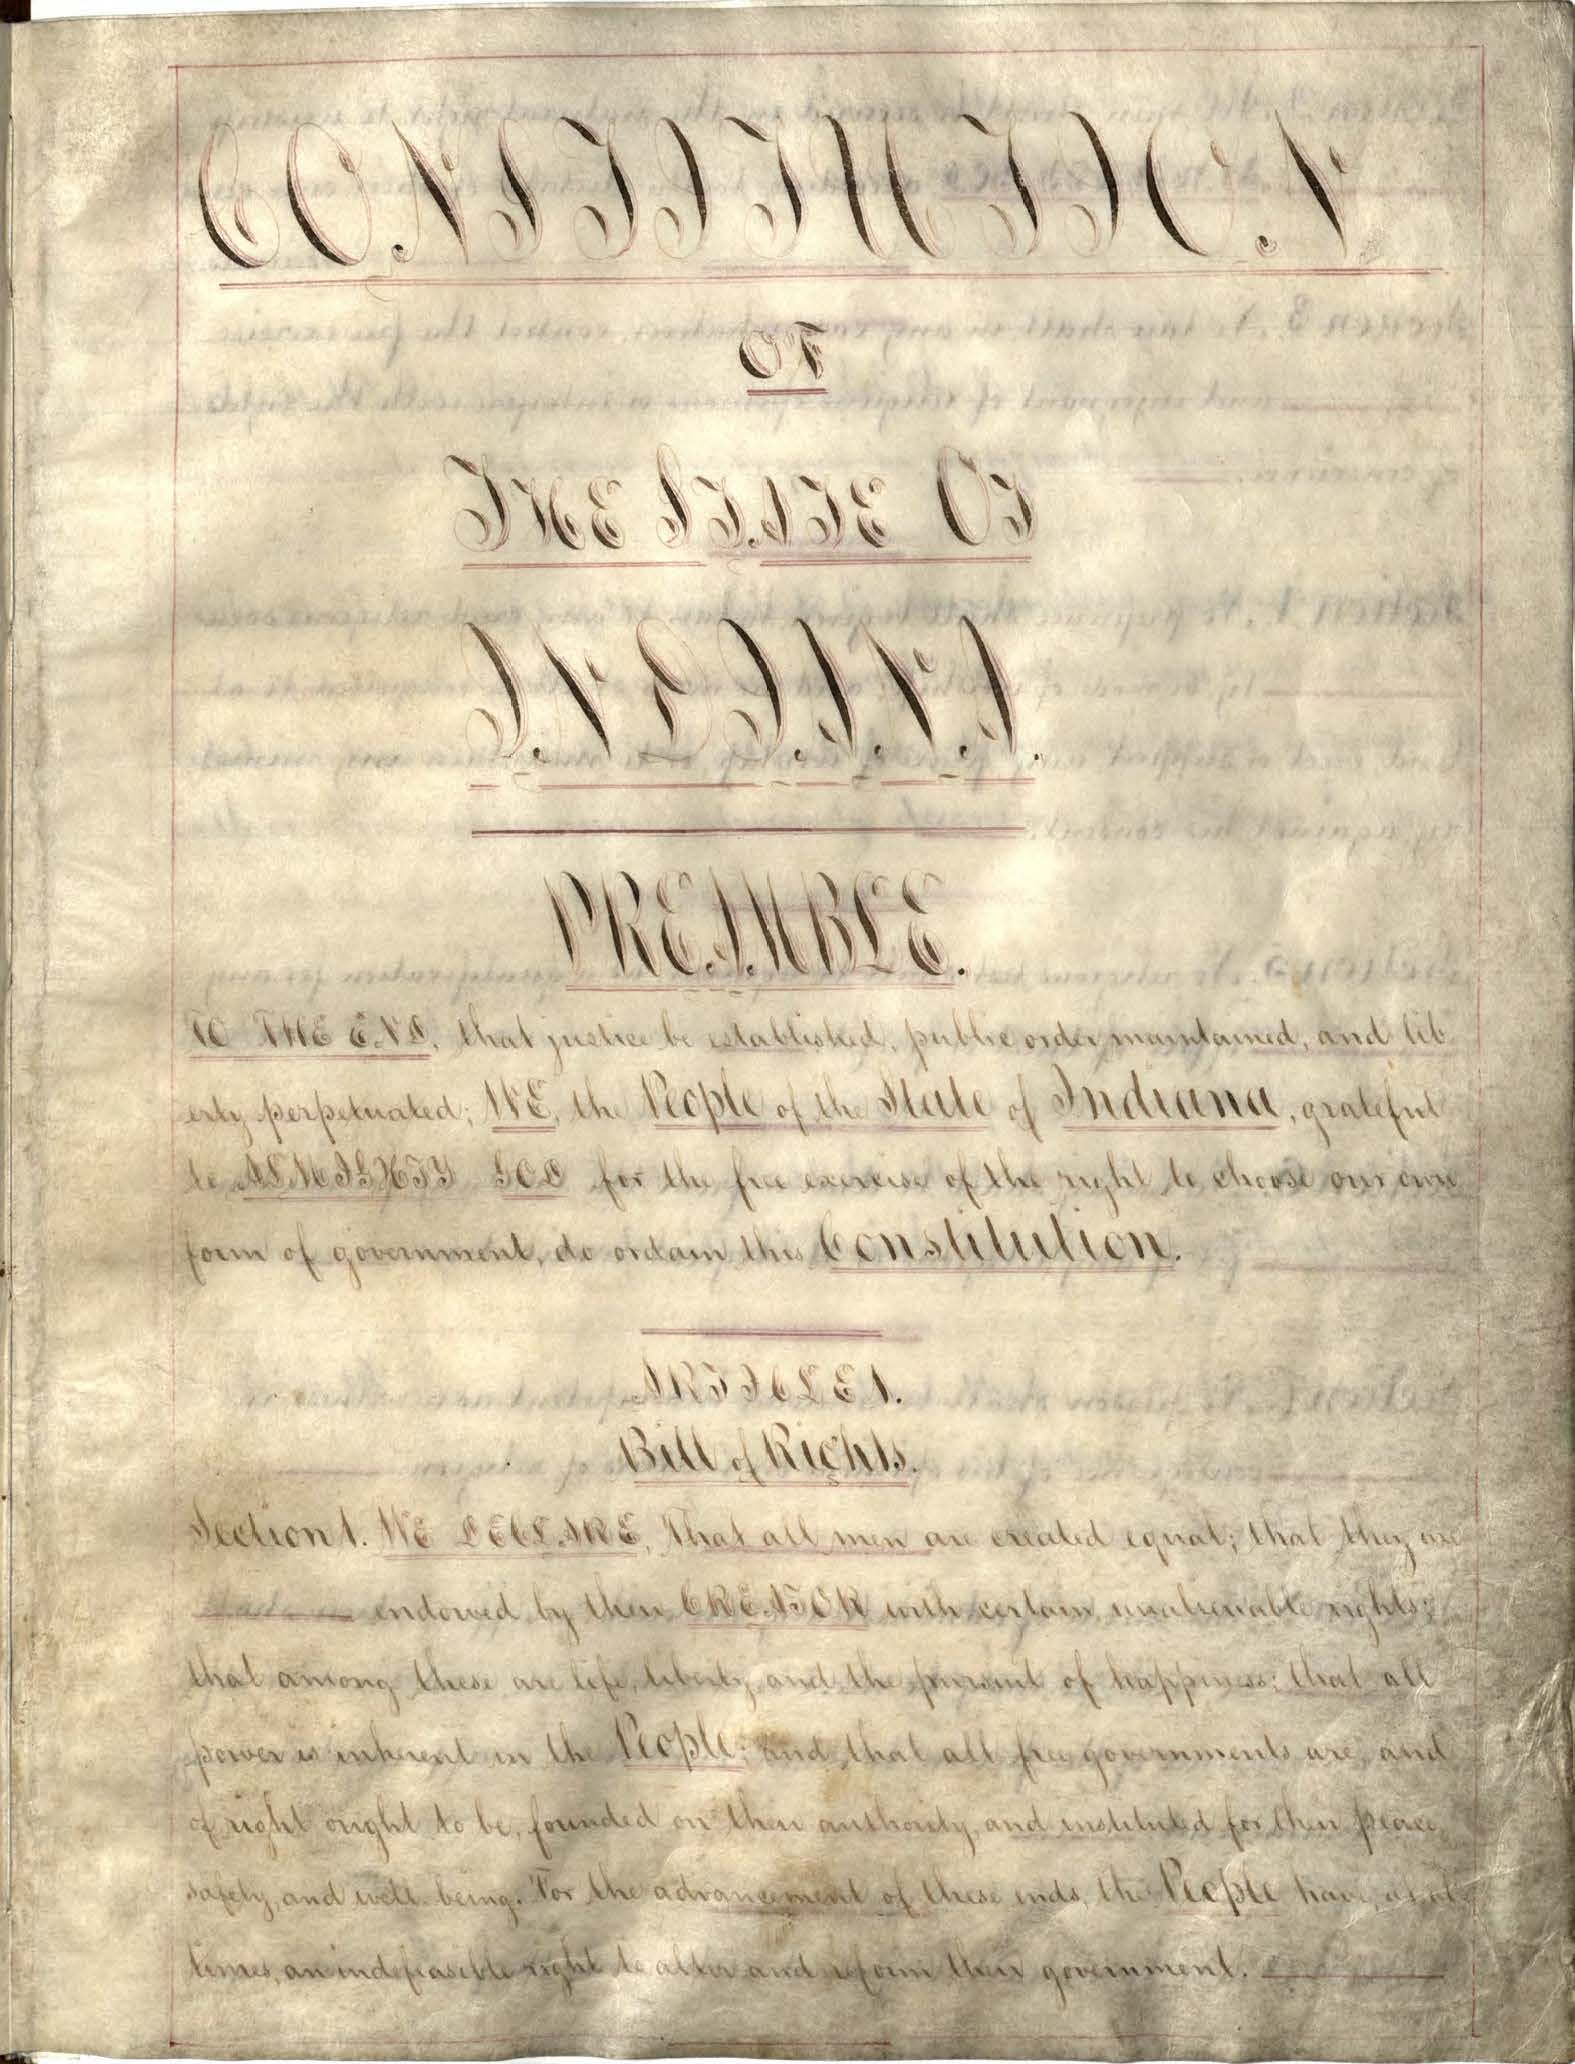 CONSTITUTION
OF
THE STATE OF
INDIANA.
PREAMBLE.
TO THE END, that justice be established, public order maintained, and lib
erty perpetuated; WE, the People of the State of Indiana, grateful
to ALMIGHTY GOD for the free exercise of the right to choose our own
form of government, do ordain this Constitution.
ARTICLE 1.
Bill of Rights.
Section 1. WE DECLARE, That all men are created equal; that they are
endowed by their CREATOR with certain unalienable rights;
that among these are life, liberty, and the pursuit of happiness; that all
power is inherent in the People; and that all free governments are, and
of right ought to be, founded on their authority, and instituted for their peace,
safety, and well-being. For the advancement of these ends, the People have, at all
times, an indefeasible right to alter and reform their government.